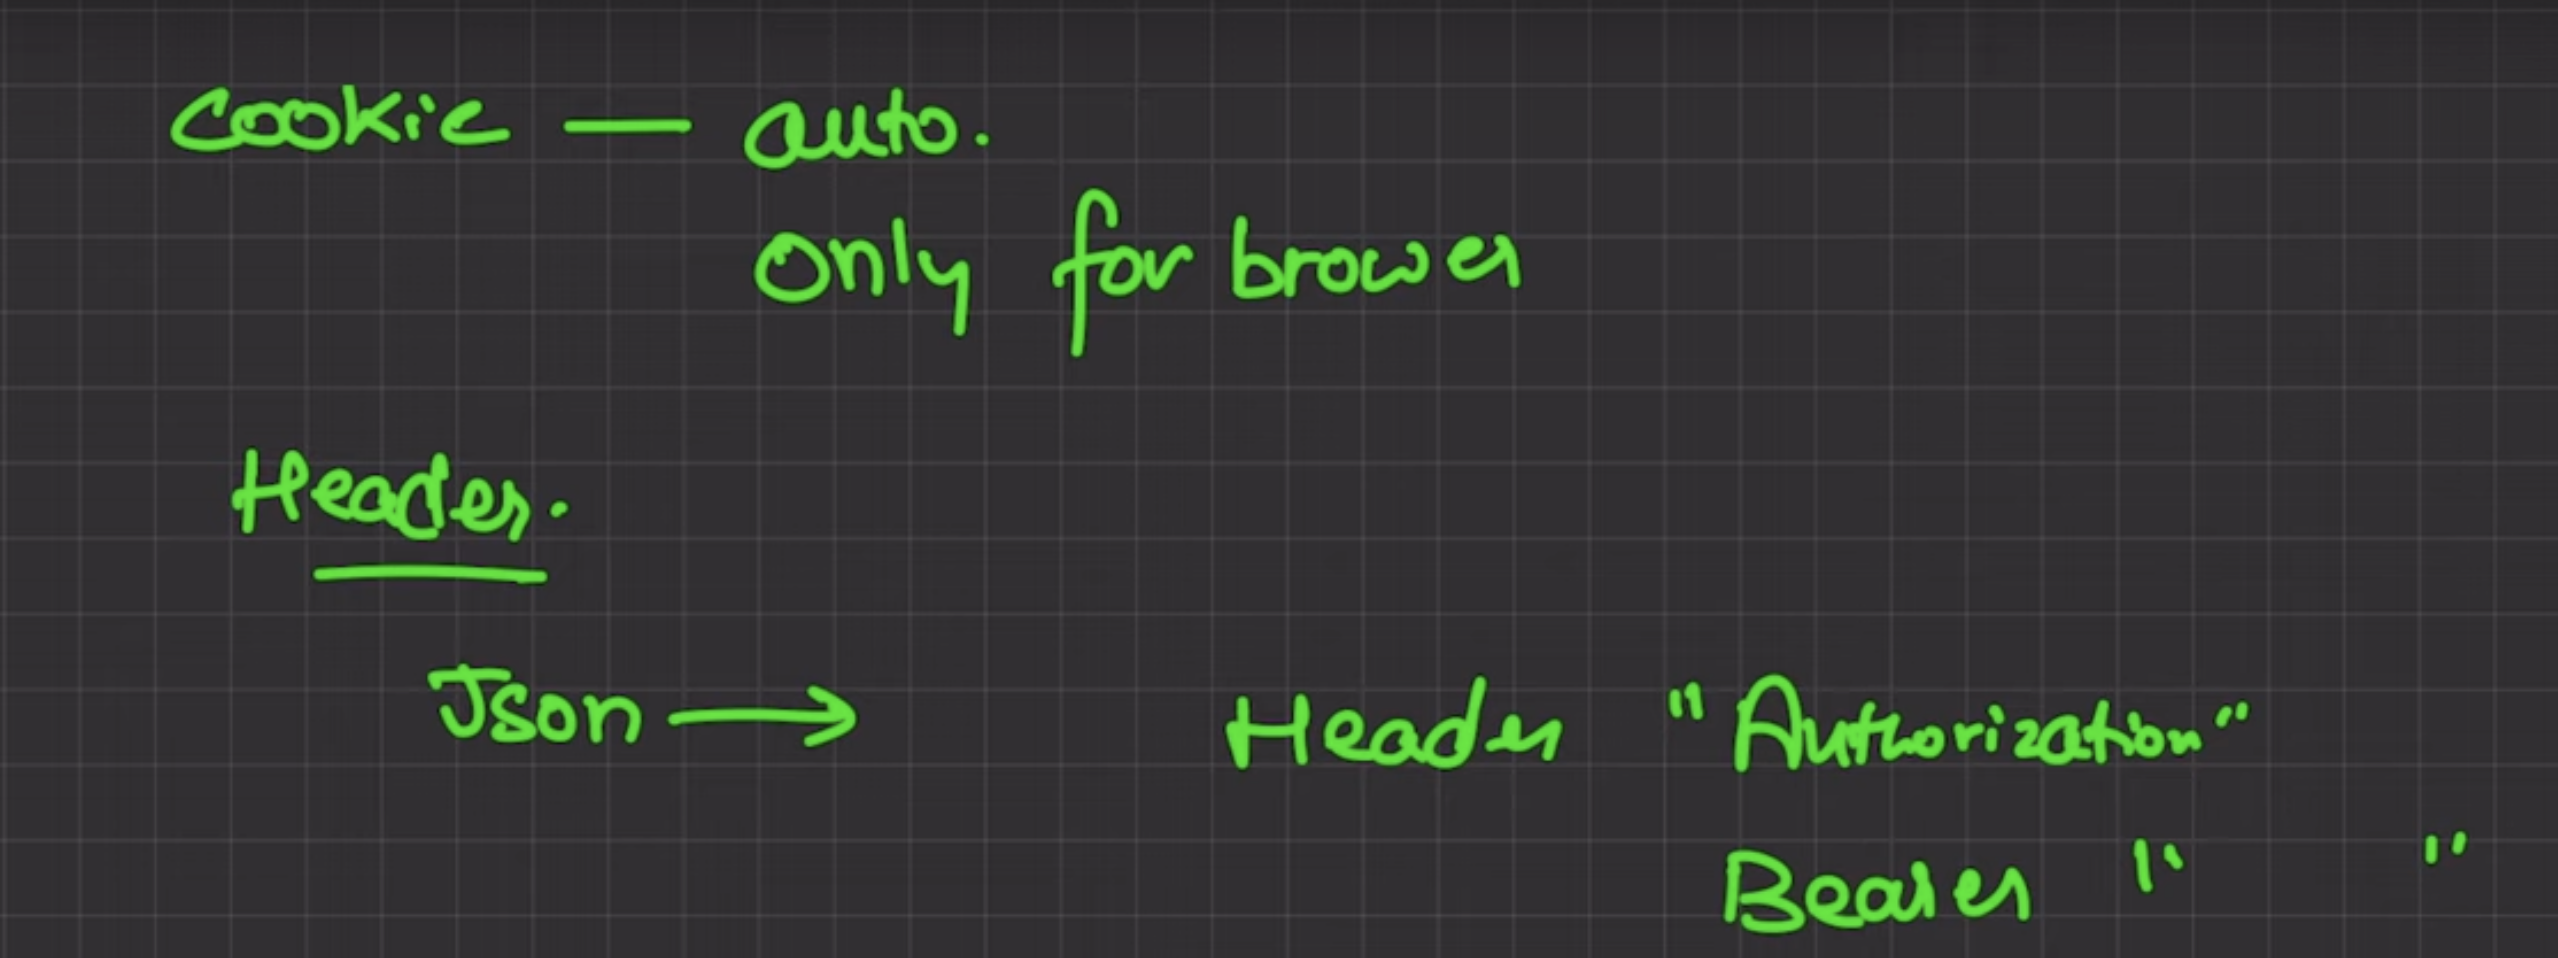 Cookie — auto.
Only for brower
Header.
Json → Header "Authorization"
Bearer " "